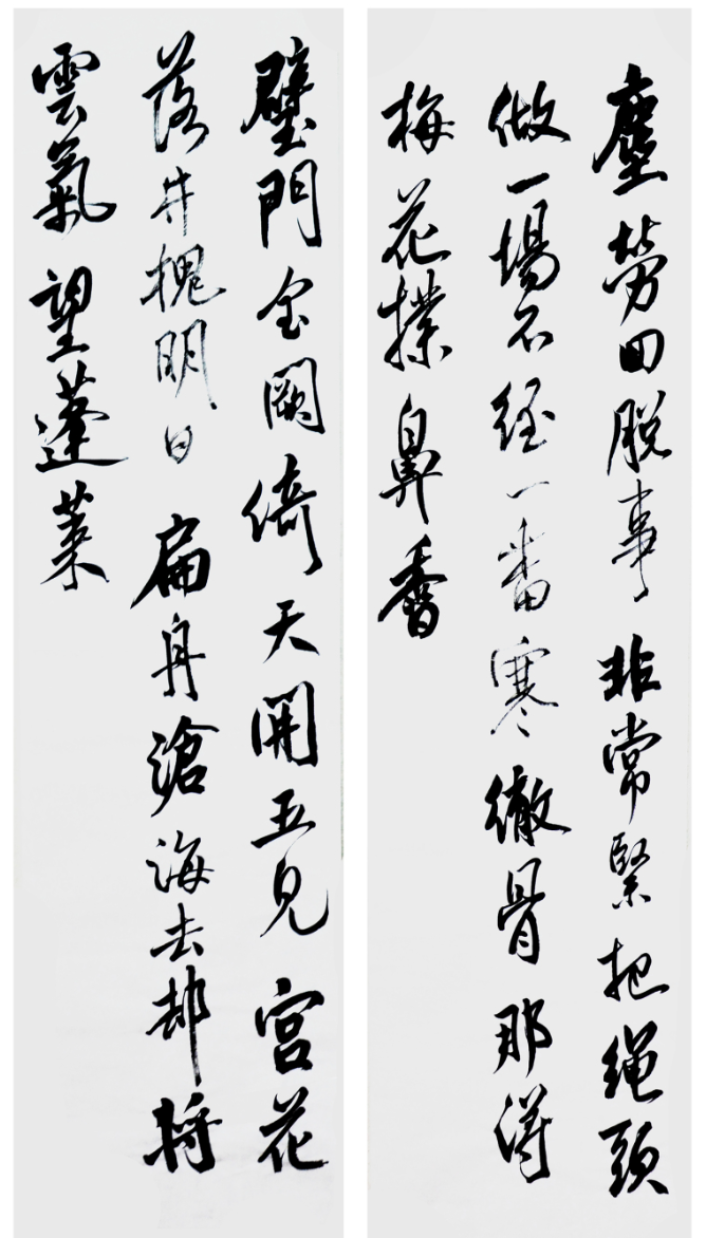 塵勞回脱事非常緊把繩頭
做一場不經一番寒徹骨那得
梅花撲鼻香
璧門金闕倚天開五見宮花
落井槐明日扁舟滄海去却將
雲氣望蓬萊